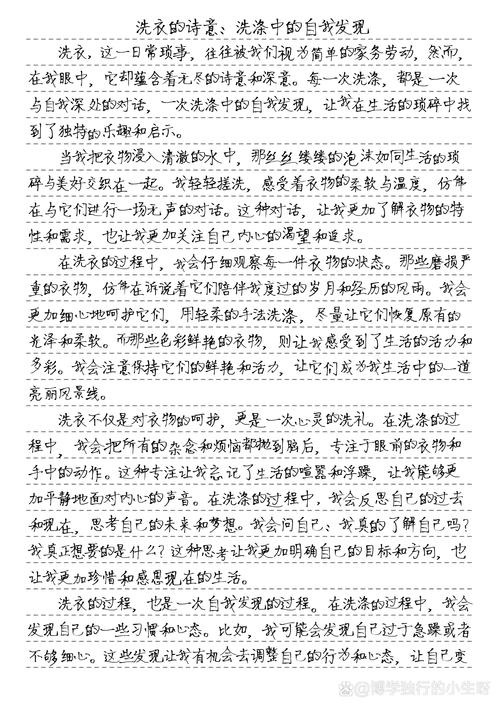 洗衣的诗意：洗涤中的自我发现
洗衣，这一日常琐事，往往被我们视为简单的家务劳动，然而，
在我眼中，它却蕴含着无尽的诗意和深意。每一次洗涤，都是一次
与自我深处的对话，一次洗涤中的自我发现，让我在生活的琐碎中找
到了独特的乐趣和启示。
当我把衣物浸入清澈的水中，那丝丝缕缕的泡沫如同生活的琐
碎与美好交织在一起。我轻轻搓洗，感受着衣物的柔软与温度，仿佛
在与它们进行一场无声的对话。这种对话，让我更加了解衣物的特
性和需求，也让我更加关注自己内心的渴望和追求。
在洗衣的过程中，我会仔细观察每一件衣物的状态。那些磨损严
重的衣物，仿佛在诉说着它们陪伴我度过的岁月和经历的风雨。我会
更加细心地呵护它们，用轻柔的手法洗涤，尽量让它们恢复原有的
光泽和柔软。而那些色彩鲜艳的衣物，则让我感受到了生活的活力和
多彩。我会注意保持它们的鲜艳和活力，让它们成为我生活中的一道
亮丽风景线。
洗衣不仅是对衣物的呵护，更是一次心灵的洗礼。在洗涤的过
程中，我会把所有的杂念和烦恼都抛到脑后，专注于眼前的衣物和
手中的动作。这种专注让我忘记了生活的喧嚣和浮躁，让我能够更
加平静地面对内心的声音。在洗涤的过程中，我会反思自己的过去
和现在，思考自己的未来和梦想。我会问自己：我真的了解自己吗？
我真正想要的是什么？这种思考让我更加明确自己的目标和方向，也
让我更加珍惜和感恩现在的生活。
洗衣的过程，也是一次自我发现的过程。在洗涤的过程中，我会
发现自己的一些习惯和心态。比如，我可能会发现自己过于急躁或者
不够细心。这些发现让我有机会去调整自己的行为和心态，让自己变
@博学独行的小生呀